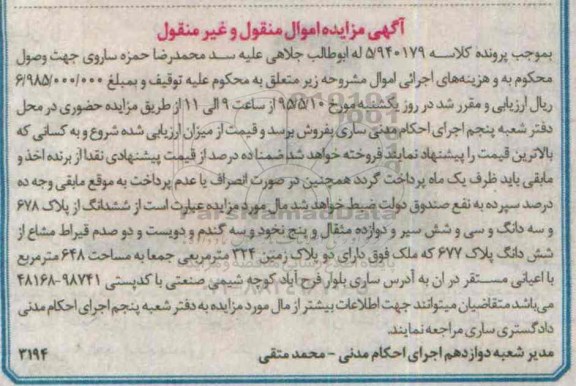 آگهی مزایده اموال منقول و غیر منقول
بموجب پرونده کلاسه ۵/۹۴۰۱۷۹ له ابوطالب جلاهی علیه سد محمدرضا حمزه ساروی جهت وصول
محکوم به و هزینه‌های اجرائی اموال مشروحه زیر متعلق به محکوم علیه توقیف و بمبلغ ۶/۹۸۵/۰۰۰/۰۰۰
ریال ارزیابی و مقرر شد در روز یکشنبه مورخ ۹۵/۵/۱۰ از ساعت ۹ الی ۱۱ از طریق مزایده حضوری در محل
دفتر شعبه پنجم اجرای احکام مدنی ساری بفروش برسد و قیمت از میزان ارزیابی شده شروع و به کسانی که
بالاترین قیمت را پیشنهاد نمایند فروخته خواهد شد ضمنا ده درصد از قیمت پیشنهادی نقدا از برنده اخذ و
مابقی باید ظرف یک ماه پرداخت گردد همچنین در صورت انصراف یا عدم پرداخت به موقع مابقی وجه ده
درصد سپرده به نفع صندوق دولت ضبط خواهد شد مال مورد مزایده عبارت است از ششدانگ از پلاک ۶۷۸
و سه دانگ و سی و شش سیر و دوازده مثقال و پنج نخود و سه گندم و دویست و دو صدم قیراط مشاع از
شش دانگ پلاک ۶۷۷ که ملک فوق دارای دو پلاک زمین ۳۲۴ مترمربعی جمعا به مساحت ۶۴۸ مترمربع
با اعیانی مستقر در ان به آدرس ساری بلوار فرح آباد کوچه شیمی صنعتی با کدپستی ۹۸۷۴۱-۴۸۱۶۸
می‌باشد متقاضیان میتوانند جهت اطلاعات بیشتر از مال مورد مزایده به دفتر شعبه پنجم اجرای احکام مدنی
دادگستری ساری مراجعه نمایند.
مدیر شعبه دوازدهم اجرای احکام مدنی - محمد متقی ۳۱۹۴